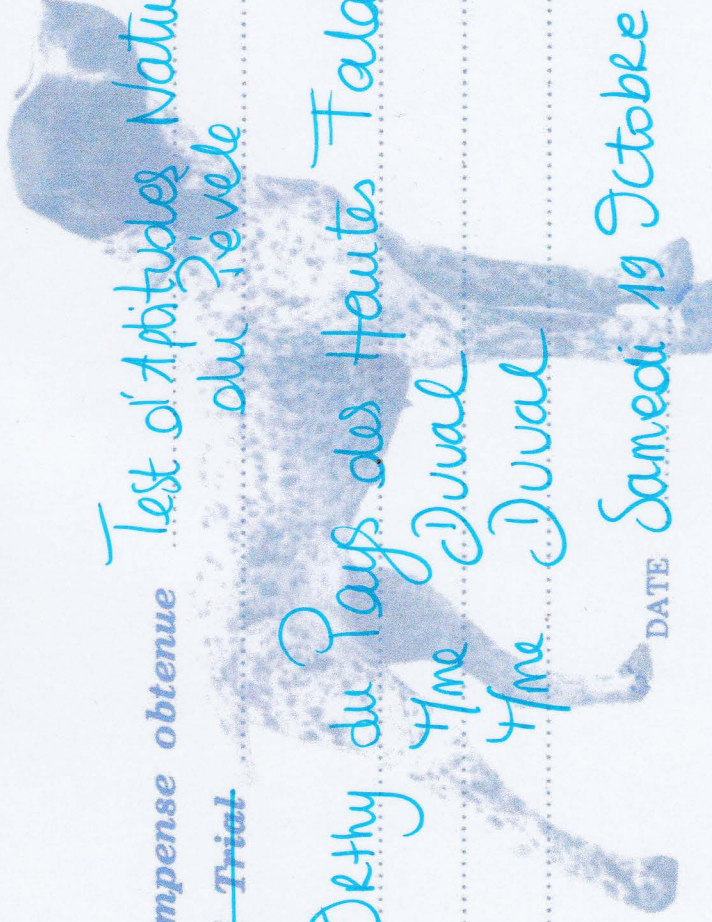 mpense obtenue Test d'Aptitudes Natu
Trial du Pévele
Orthy du Pays des Hautes Fala
Mme Duval
Mme Duval
DATE Samedi 19 Octobre